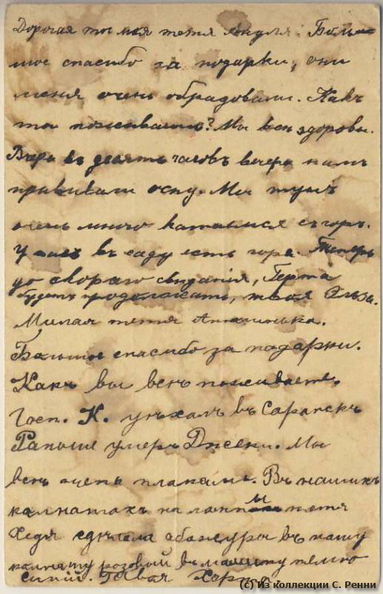 Дорогая моя тетя Люля. Боль-
шое спасибо за подарки, они
меня очень обрадовали. Какъ
ты поживаешь? Мы всѣ здоровы.
Вчера въ девять часовъ вечера намъ
прививали оспу. Мы тутъ
очень много катаемся съ горъ.
У насъ въ саду есть гора. Теперь
до скораго свиданія, Герта
будетъ продолжать, твоя Эльза.
Милая тетя
Большое спасибо за подарки.
Какъ вы всѣ поживаете.
Госп. К. уѣхалъ въ Сарапскъ
Раньше умеръ Джеки. Мы
всѣ очень плакали. Въ нашихъ
комнатахъ на лампы тетя
Федя сдѣлала абажуры въ нашу
комнату розовый въ мамину темно
синій. Твоя
(с) Из коллекции С. Ренни